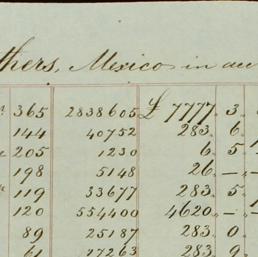 thers, Mexico in acc
365 2838605 £ 7777. 3.
144 40752 283. 6.
205 1230 6. 5. 1
198 5148 26. — „ —
119 33677 283. 5.
120 554400 4620. — „ — 1
89 25187 283. 0.
61 17263 283. 9.